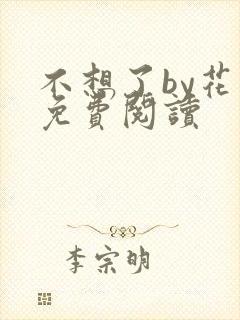 不想了by花
免費閱讀
李宗明